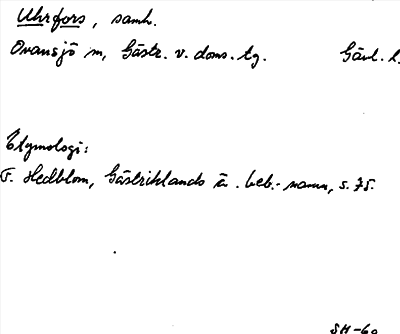 Uhrfors, samh.
Ovansjö sn, Gästr. v. doms. tg. Gävl. l.
Etymologi:
F. Hedblom, Gästriklands ä. beb.-namn, s. 75.
SH-60